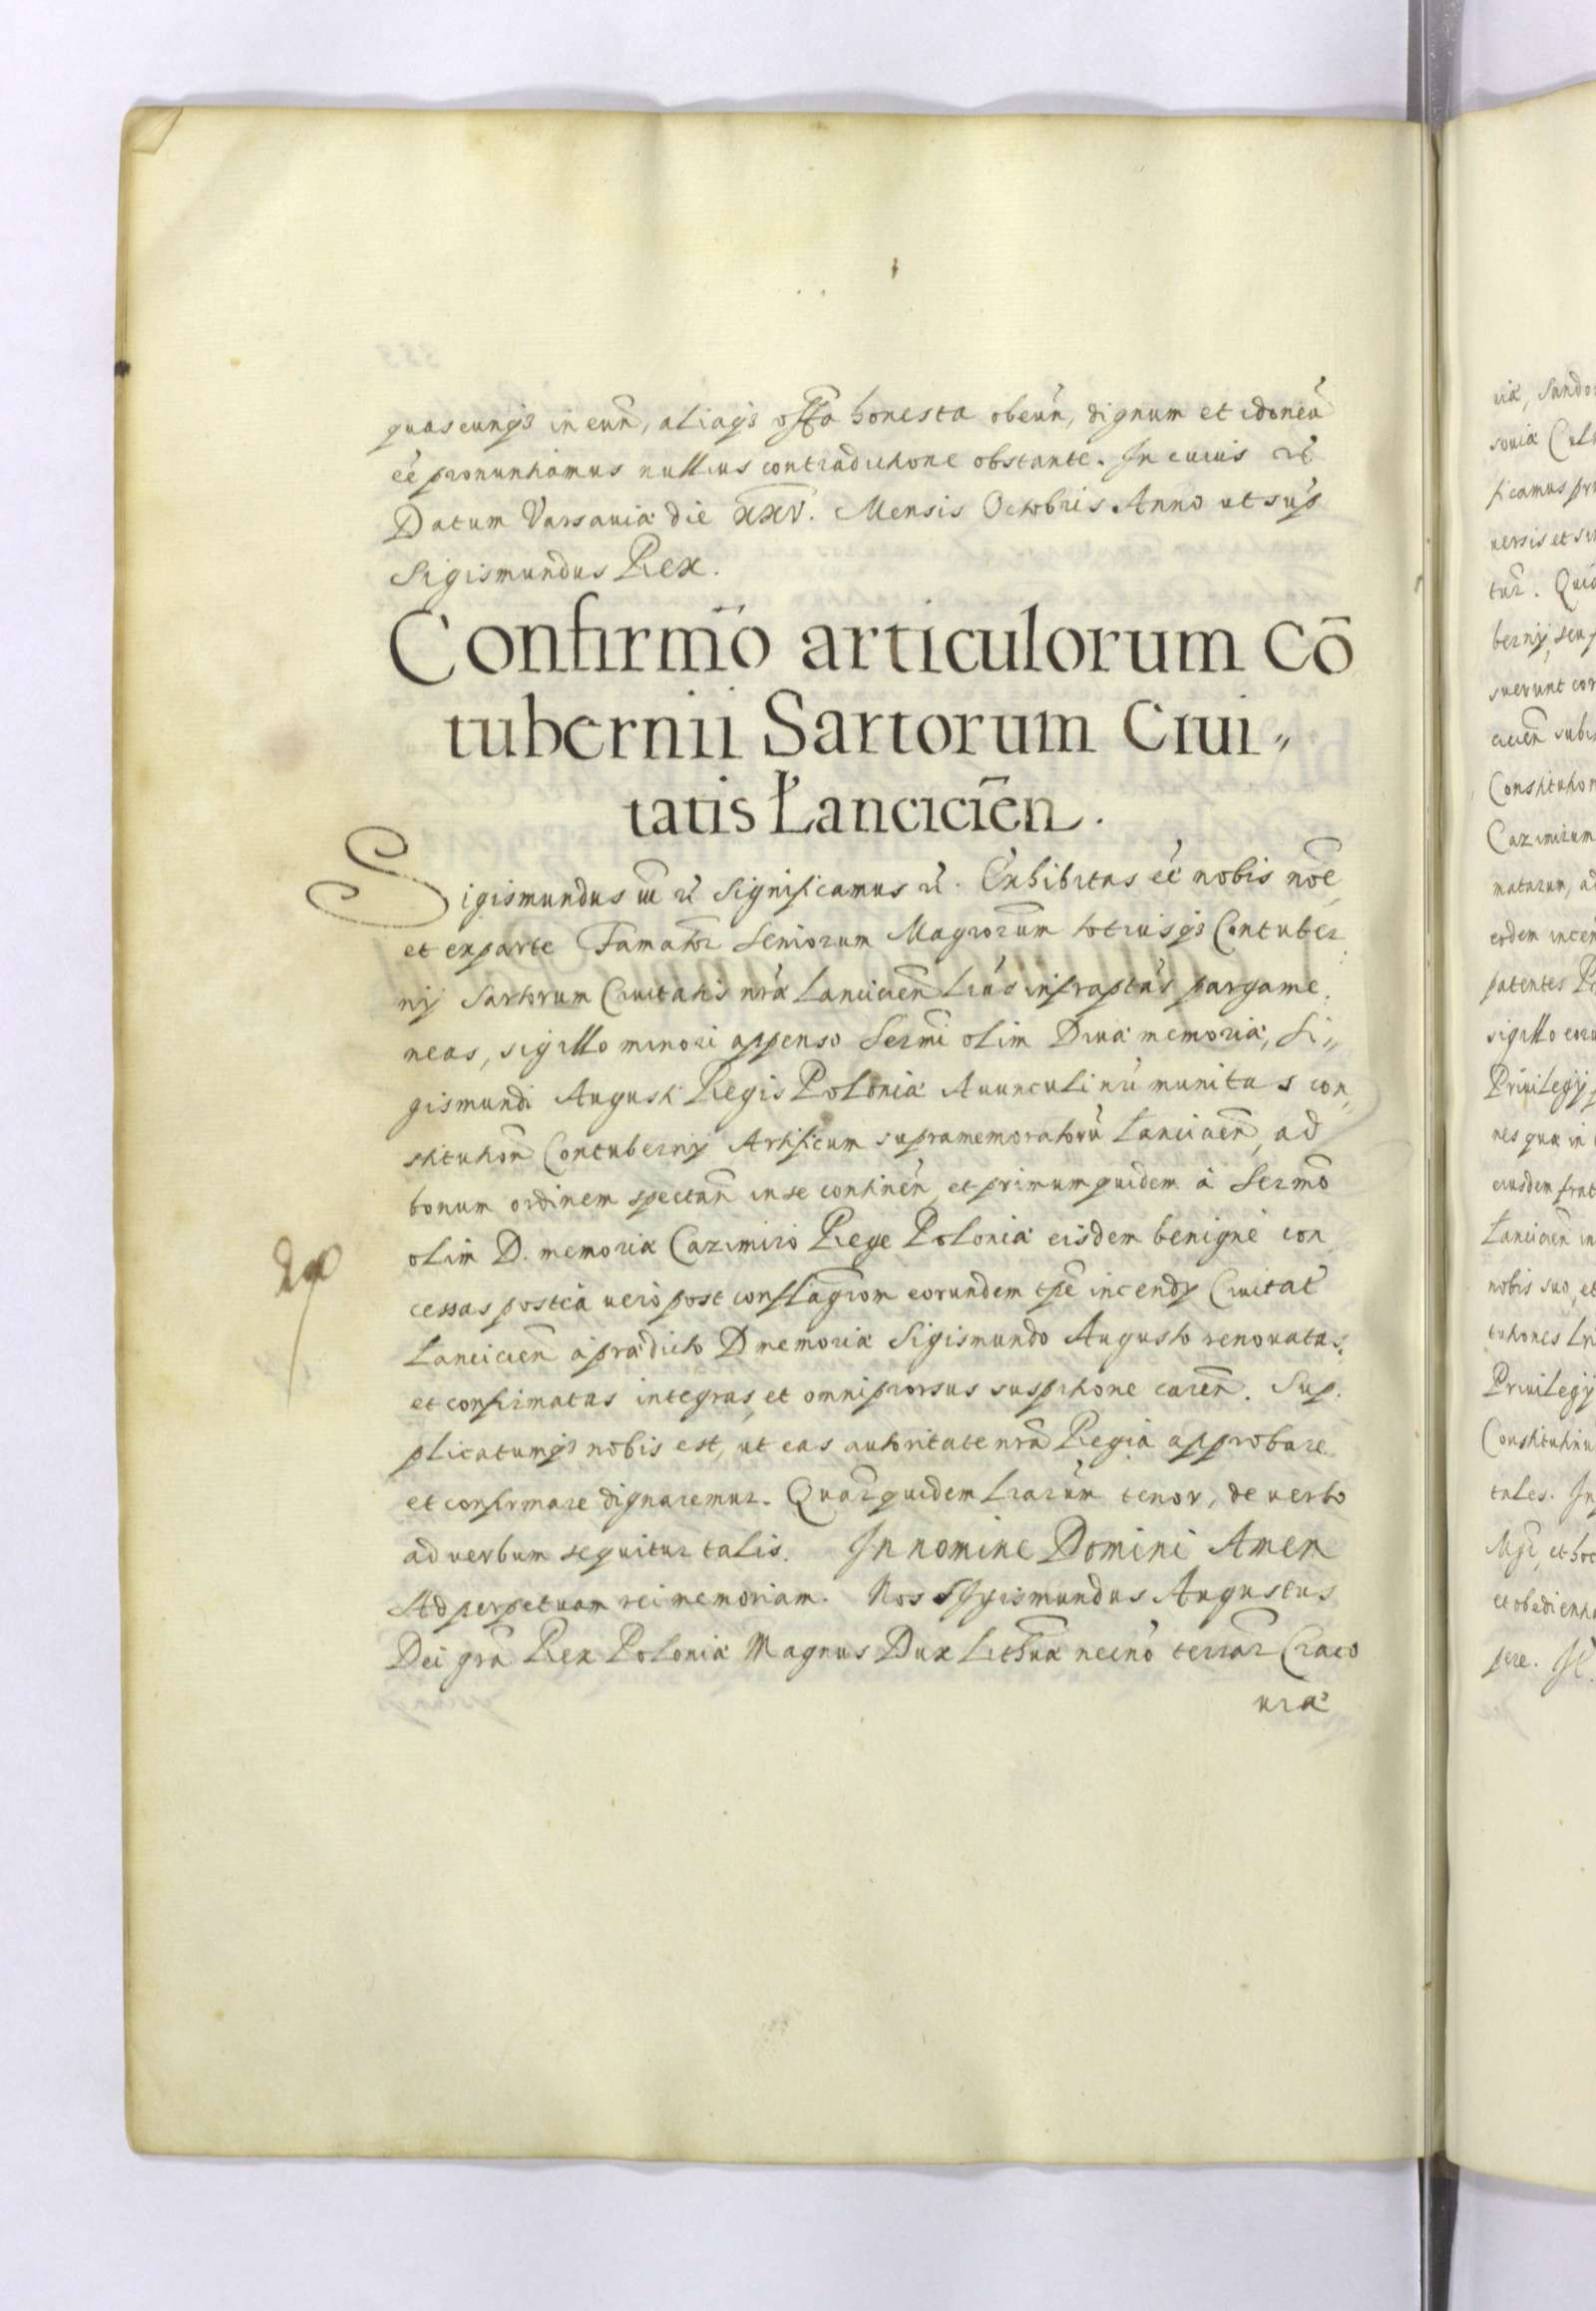 quascunqs in eun̄, aliaqs offa honesta obeun̄, dignum et idoneū
eē pronuntiamus nullius contradictione obstante. In cuius rei
Datum Varsauiæ die XXV. Mensis Octobris Anno ut sup
Sigismundus Rex.
Confirmō articulorum Cō
tubernii Sartorum Ciui„
tatis Łancicień.
Sigismundus III rc̄ Significamus rc̄. Exhibitas eē nobis noē,
et ex parte Famator Seniorum Magrorum totiusqs Contuber
nij Sartorum Ciuitatis nræ Lancicień Lrās infraptās pargame,
neas, sigillo minori appenso Sermi olim Diuæ memoriæ, Si„
gismundi Augusti Regis Poloniæ Auunculi nri munitas con„
stitution̄ Contubernij Artificum supramemoratorū Lancicień, ad
bonum ordinem spectan̄ in se continen̄, et primum quidem à Sermo
olim D. memoriæ Cazimiro Rege Poloniæ eisdem benigne con
cessas posteà uero post conflagrom eorundem tpē incendy Ciuitat
Lancicień à prædicto D memoriæ Sigismundo Augusto renouatas,
et confirmatas integras, et omni prorsus suspitione caren̄. Sup.
plicatumqs nobis est, ut eas autoritate nrā Regia approbare
et confirmare dignaremur. Quar quidem Lrarum tenor, de uerbo
ad uerbum sequitur talis. In nomine Domini Amen
Ad perpetuam rei memoriam. Nos Sigismundus Augustus
Dei grā Rex Poloniæ Magnus Dux Lithuæ necnō terrar Craco
uiæ
riæ, Sando
souiæ Cul
ficamus pr
uersis et si
tur. Quia
bernij, seu
suerunt con
cicień subi
Constitution
Cazimirum
natarum, ad
eodem incen
patentes P
sigillo eor
Priuilegij p
nes quæ in
eiusdem frat
Lancicień in
nobis suo, et
tutiones Lri
Priuilegij
Constitutiu
tales. In
Mgr, et hoc
et obedientia
pere.